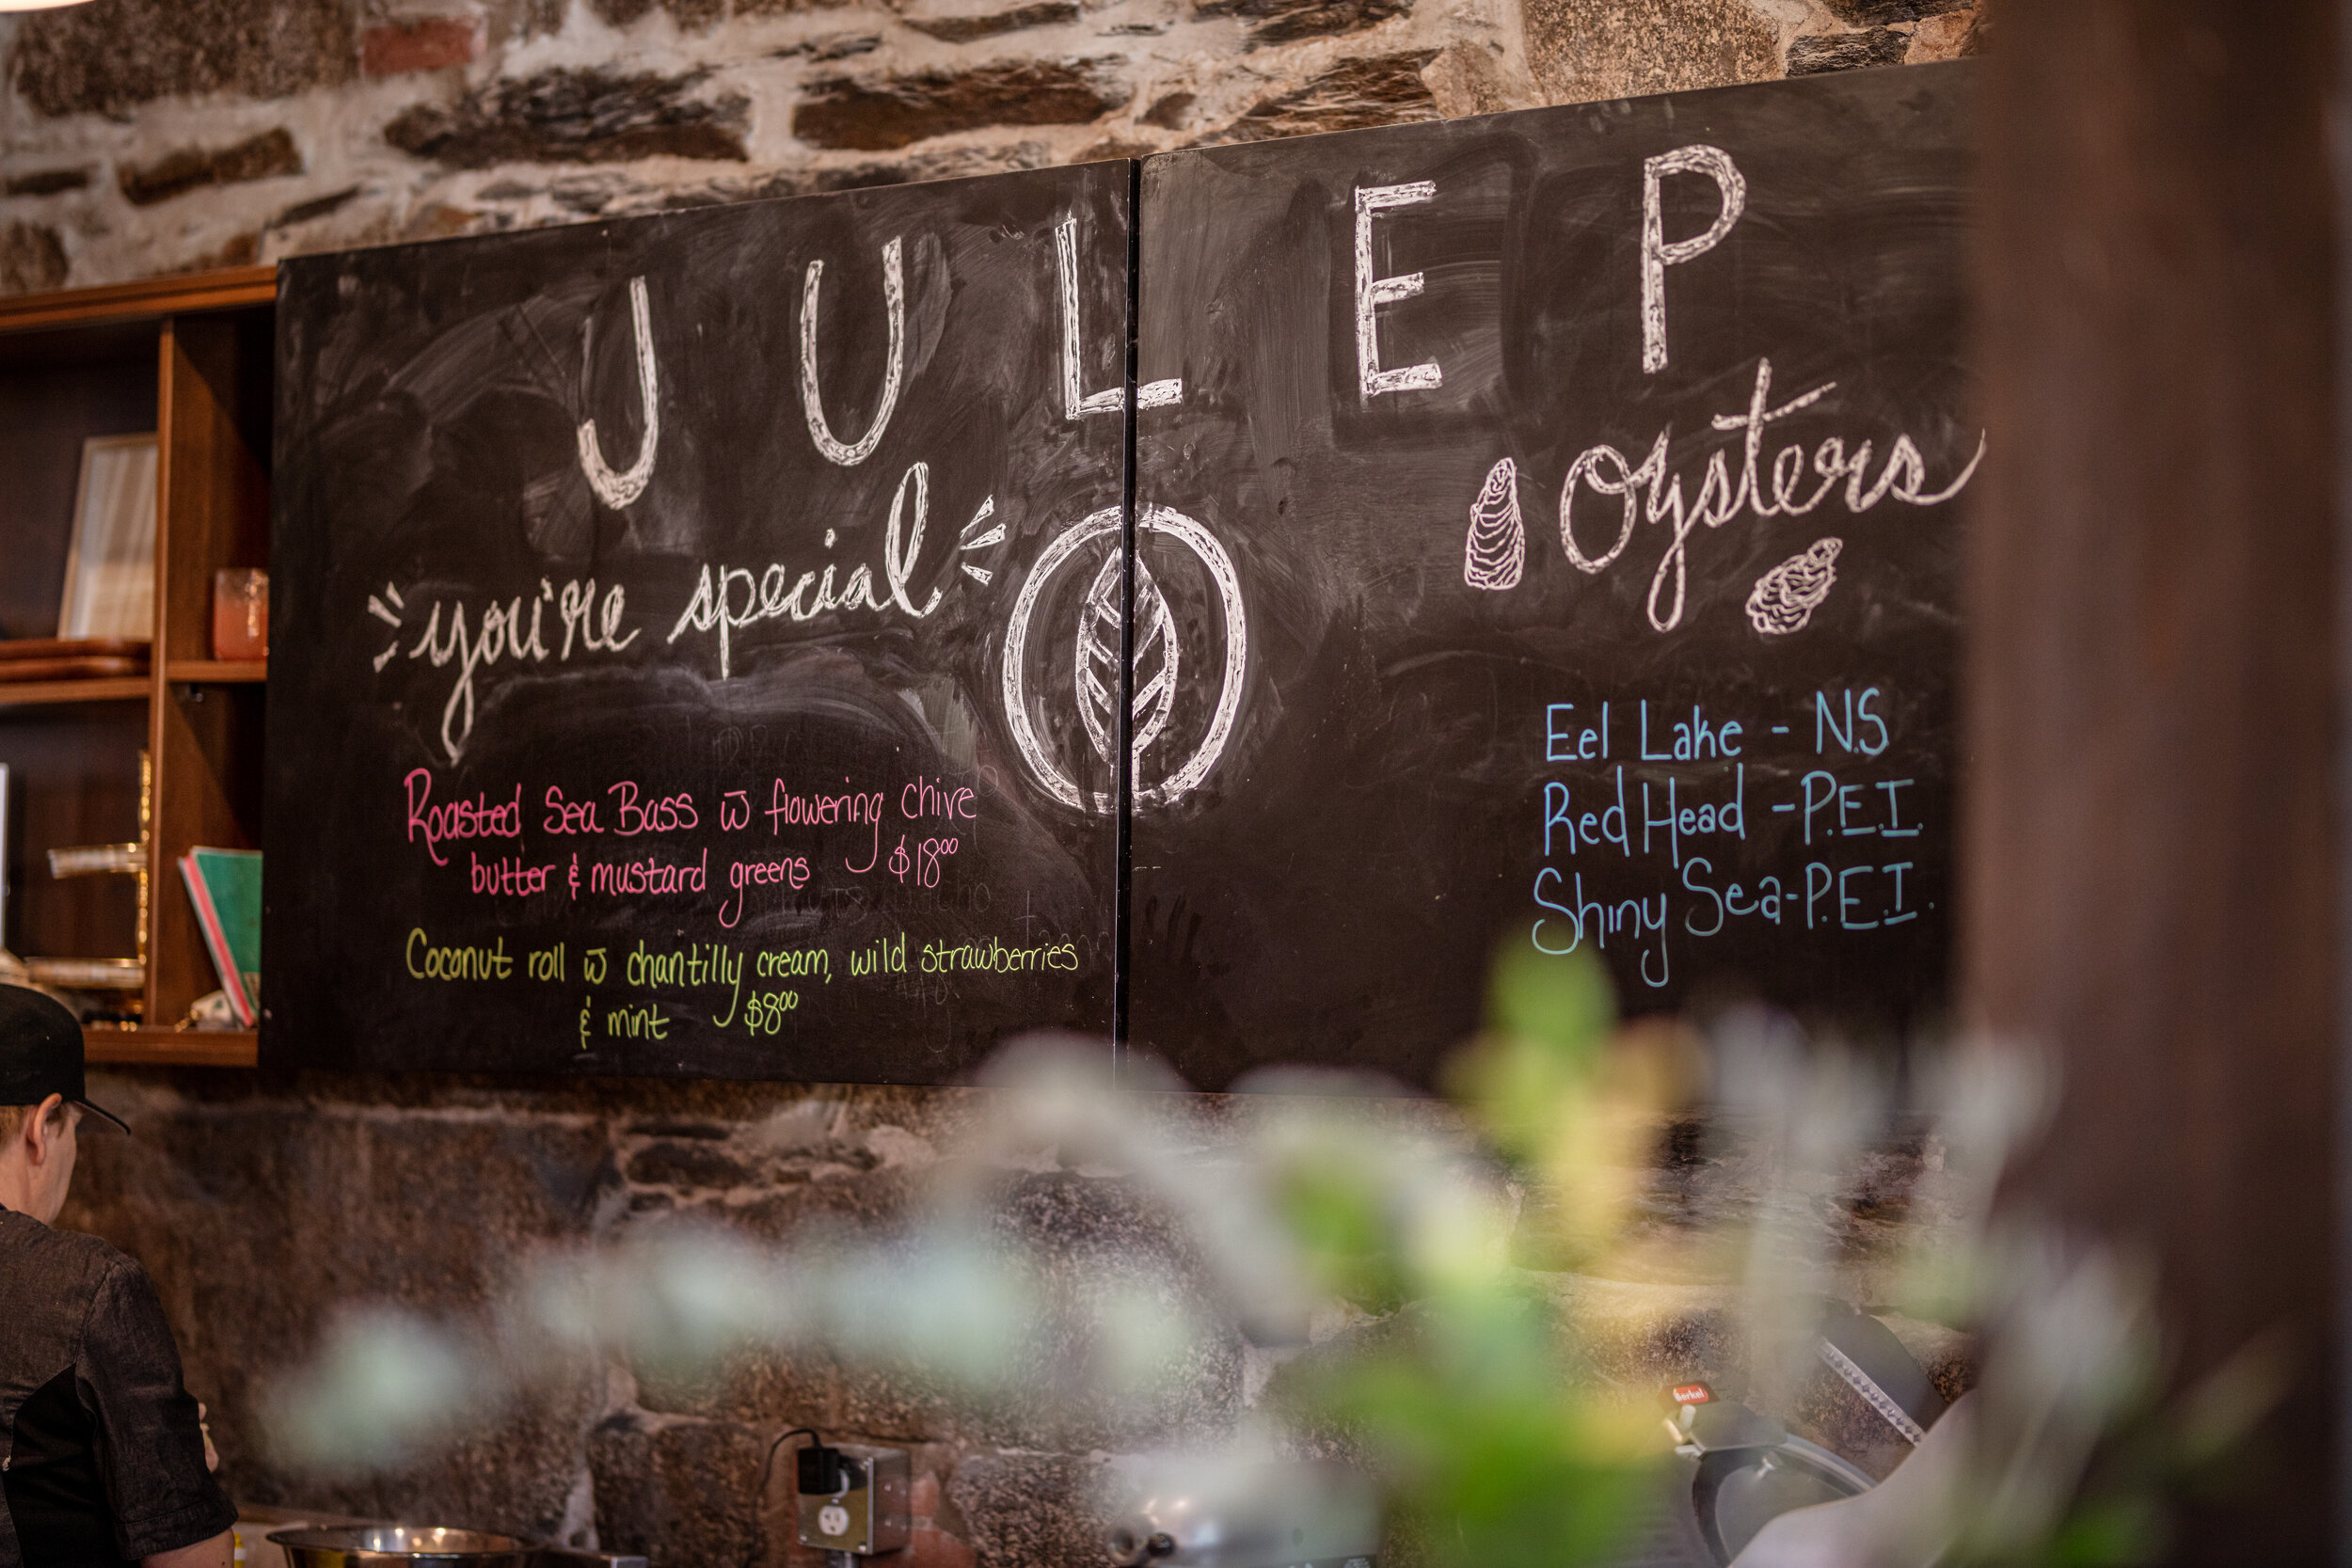 JULEP
you're special
Roasted Sea Bass w̅ flowering chive
butter & mustard greens $18⁰⁰
Coconut roll w̅ chantilly cream, wild strawberries
& mint $8⁰⁰
Oysters
Eel Lake - N.S.
Red Head - P.E.I.
Shiny Sea - P.E.I.
Berkel